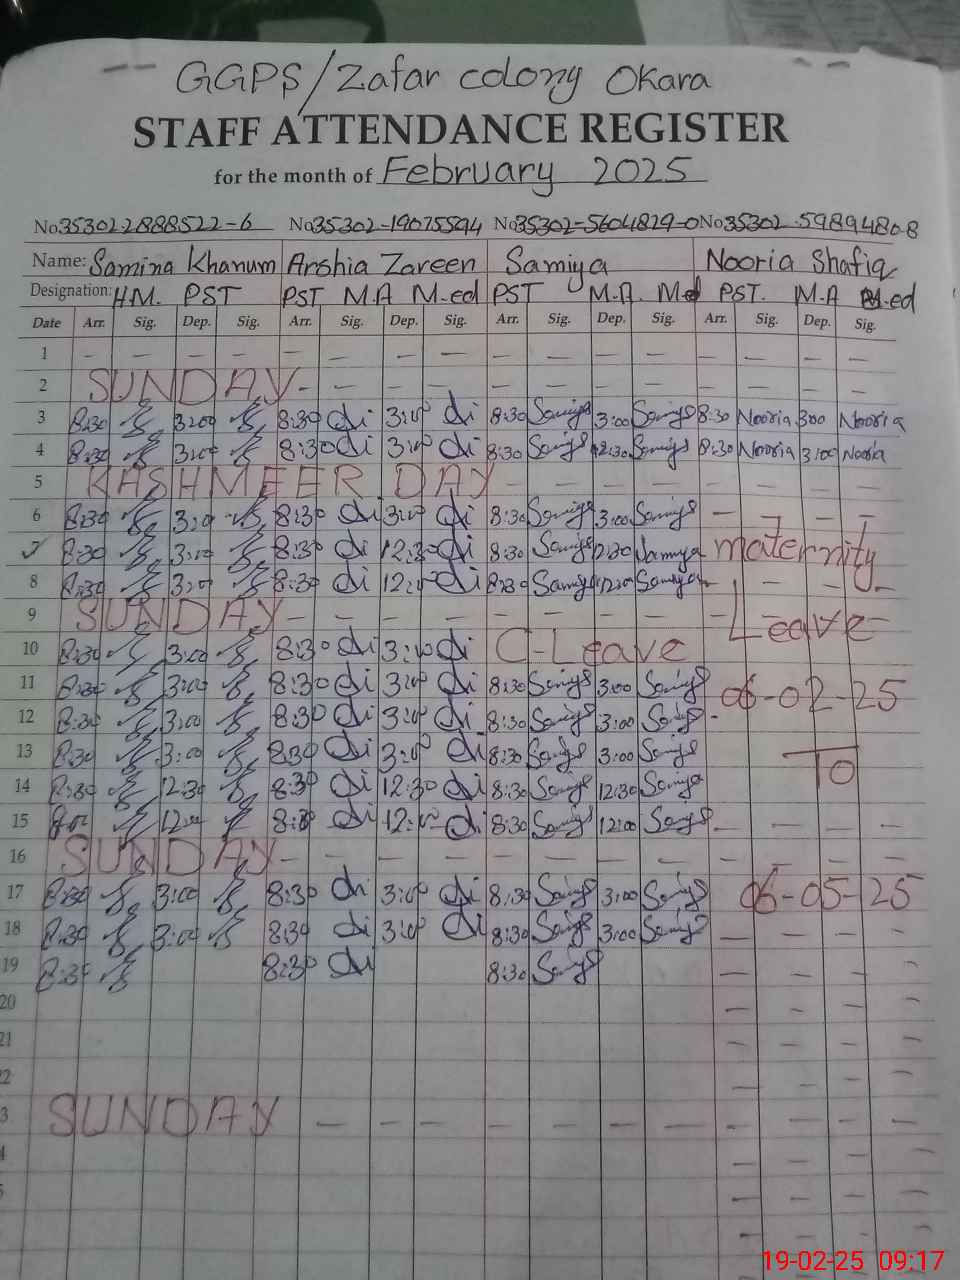 GGPS/Zafar colony Okara
STAFF ATTENDANCE REGISTER
for the month of February 2025
No.353022888522-6 No.35302-19075594 No.35302-5604829-0 No.35302-59894808
Name: Samina Khanum Arshia Zareen Samiya Nooria Shafiq
Designation: H.M. PST PST M.A M-ed PST M.A. M-ed PST. M.A M.ed
Date Arr. Sig. Dep. Sig. Arr. Sig. Dep. Sig. Arr. Sig. Dep. Sig. Arr. Sig. Dep. Sig.
1 - - - - - - - - - - - - - - - -
2 SUNDAY - - - - - - - - - - -
3 8:30 3:00 8:30 3:00 8:30 Samiya 3:00 Samiya 8:30 Nooria 3:00 Nooria
4 8:30 3:00 8:30 3:00 8:30 Samiya 12:30 Samiya 8:30 Nooria 3:00 Nooria
5 KASHMEER DAY - - - - - - - -
6 8:30 3:00 8:30 3:00 8:30 Samiya 3:00 Samiya - - - -
7 8:30 3:00 8:30 12:30 8:30 Samiya 12:30 Samiya maternity
8 8:30 3:00 8:30 12:00 8:30 Samiya 12:00 Samiya - - - -
9 SUNDAY - - - - - - - - Leave
10 8:30 3:00 8:30 3:00 C-Leave
11 8:30 3:00 8:30 3:00 8:30 Samiya 3:00 Samiya 06-02-25
12 8:30 3:00 8:30 3:00 8:30 Samiya 3:00 Samiya -
13 8:30 3:00 8:30 3:00 8:30 Samiya 3:00 Samiya
14 8:30 12:30 8:30 12:30 8:30 Samiya 12:30 Samiya TO
15 8:00 12:00 8:30 12:00 8:30 Samiya 12:00 Samiya - - - -
16 SUNDAY - - - - - - - - - - - -
17 8:30 3:00 8:30 3:00 8:30 Samiya 3:00 Samiya 06-05-25
18 8:30 3:00 8:30 3:00 8:30 Samiya 3:00 Samiya - - - -
19 8:30 8:30 8:30 Samiya - - - -
20 - - - -
21 - - - -
2 - - - -
3 SUNDAY - - - - - - - - - - - -
4 - - - -
5 - - - -
19-02-25 09:17